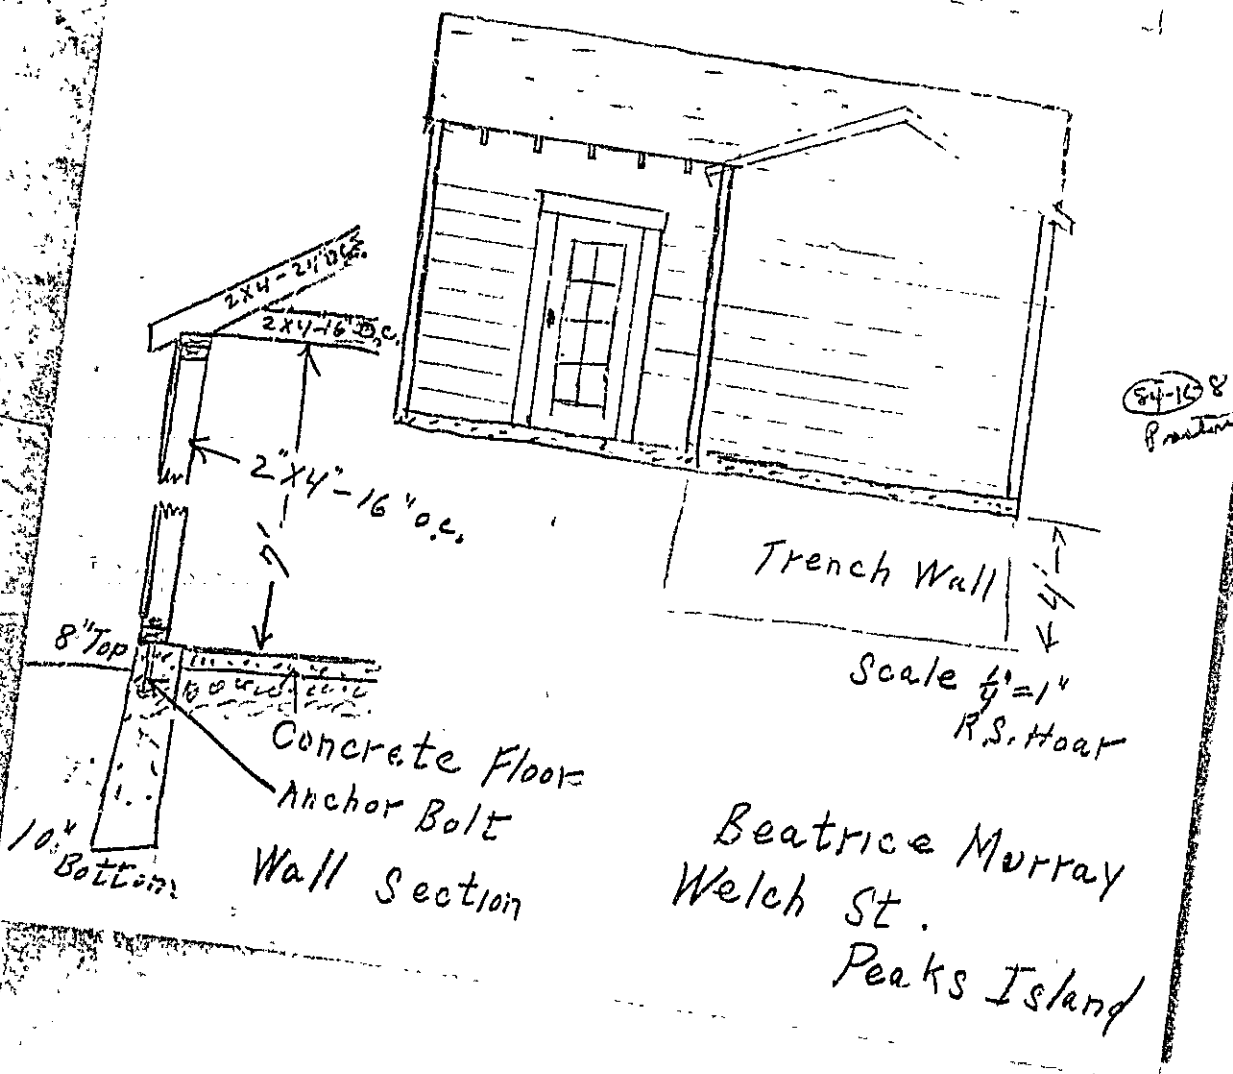 2X4-24"O.C.
2X4-16"O.C.
2"X4"-16"o.c.
7'
8"Top
Concrete Floor
Anchor Bolt
10"
Bottom
Wall Section
Trench Wall
4'
Scale 1/4"=1"
R.S. Hoar
Beatrice Murray
Welch St.
Peaks Island